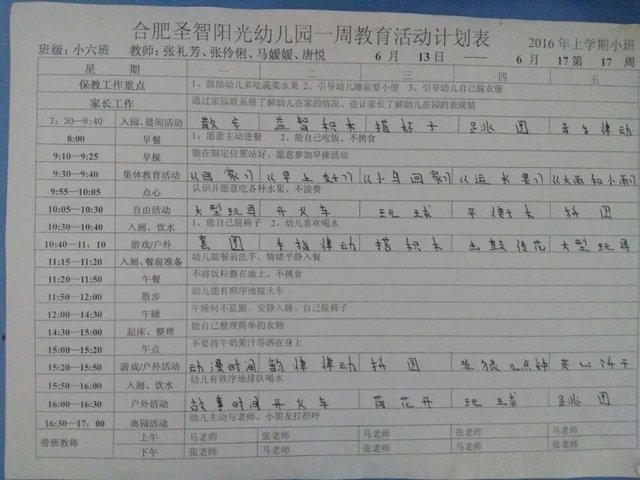 合肥圣智阳光幼儿园一周教育活动计划表
班级:小六班 教师:张礼芳、张伶俐、马媛媛、唐悦 6 月 13 日 —— 6 月 17 日 第 17 周 2016 年上学期小班
星 期 一 二 三 四 五
保教工作重点 1、鼓励幼儿多吃蔬菜水果 2、引导幼儿睡前要小便 3、引导幼儿自己脱衣服
家长工作 通过家园联系册了解幼儿在家的情况、也让家长了解幼儿在园的表现情
7:30—8:40 入园、晨间活动 散步 益智积木 搭杯子 跳圈 音乐律动
8:00 早餐 1、愿意主动进餐 2、能自己吃饭、不挑食
9:10—9:25 早操 能在制定位置站好、愿意参加早操活动
9:30—9:40 集体教育活动 《回家》 《早上好》 《小鸟回家》 《运水果》 《大雨和小雨》
9:55—10:05 点心 认识并愿意吃各种水果、不浪费
10:05—10:30 自由活动 大型玩具 开火车 玩球 平衡木 拼图
10:30—10:40 入厕、饮水 1、能自己脱裤子 2、幼儿喜欢喝水
10:40—11:10 游戏/户外 套圈 手指律动 搭积木 击鼓传花 大型玩具
11:15—11:20 入厕、餐前准备 幼儿能餐前洗手、情绪平静入餐
11:20—11:50 午餐 不将饭粒撒在地上、不挑食
11:50—12:00 散步 幼儿能有顺序地接火车
12:00—14:30 午睡 午睡时不乱跑、安静入睡、自己脱裤子
14:30—15:00 起床、整理 能自己整理简单的衣物
15:00—15:20 午点 不要将牛奶果汁等洒在身上
15:20—15:50 游戏/户外活动 动漫时间 韵律律动 拼图 老狼几点钟 夹心饼干
15:50—16:00 入厕、饮水 幼儿有秩序地排队喝水
16:00—16:30 户外活动 故事时间 开火车 荷花开 玩球 跳圈
16:30—17:00 离园活动 幼儿主动与老师、小朋友打招呼
带班教师 上午 马老师 张老师 马老师 张老师 马老师
下午 张老师 马老师 张老师 马老师 张老师